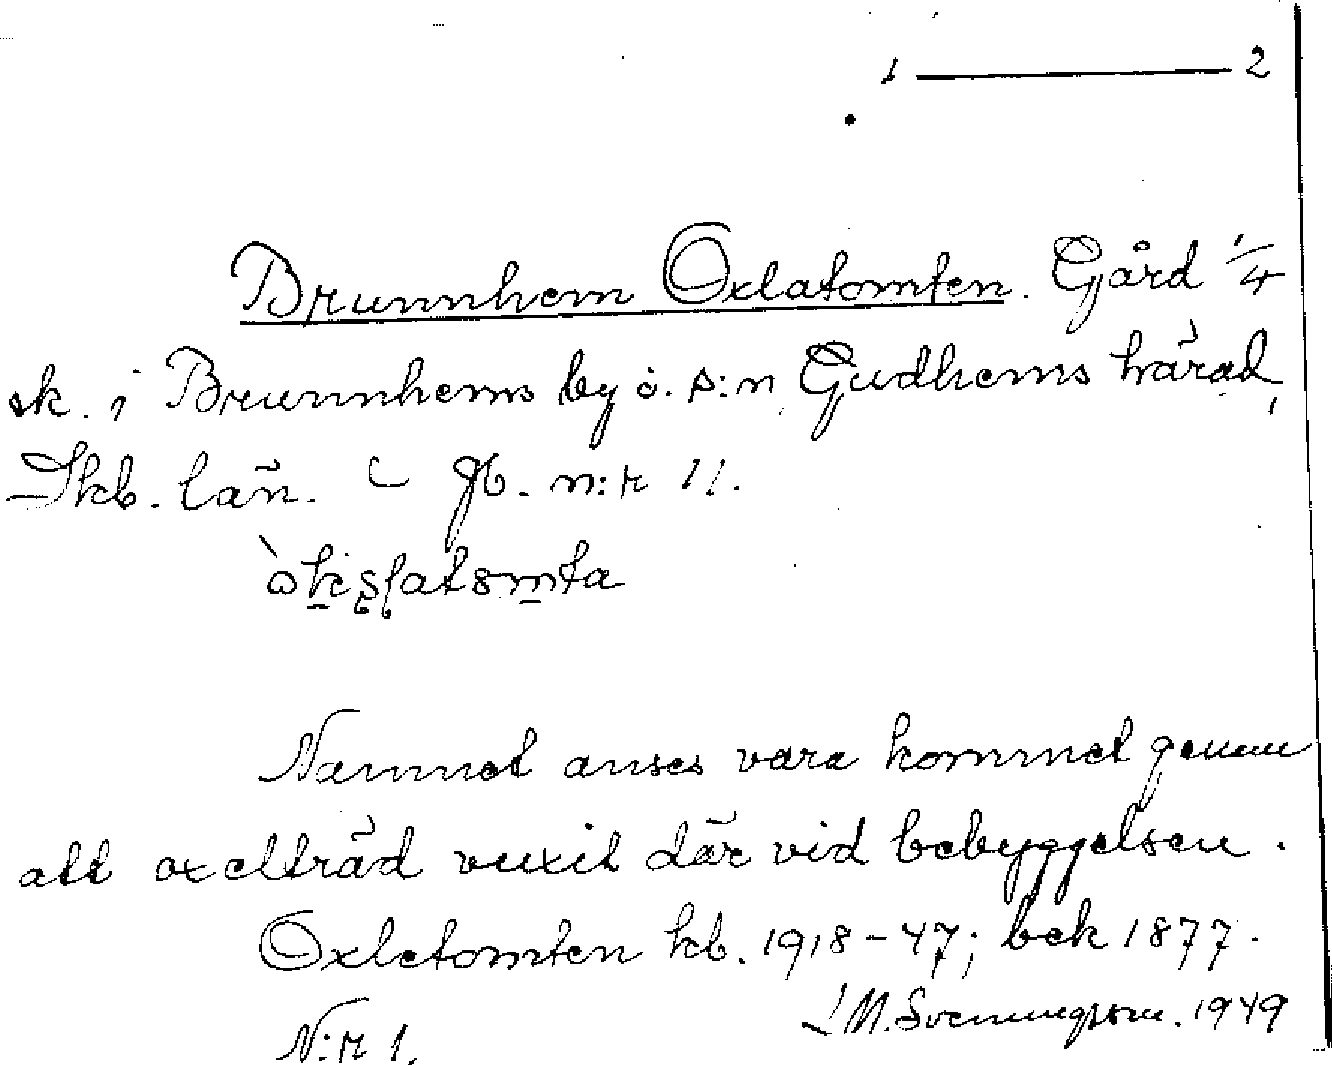 1 — 2
Brunnhem Oxlatomten. Gård 1/4
sk. i Brunnhems by o. s:n, Gudhems härad,
Skb. län. Jb. n:r 11.
Namnet anses vara kommet genom
att oxelträd vuxit där vid bebyggelsen.
Oxletomten kb. 1918-47; bek 1877.
N:r 1. M. Svenungsson. 1949